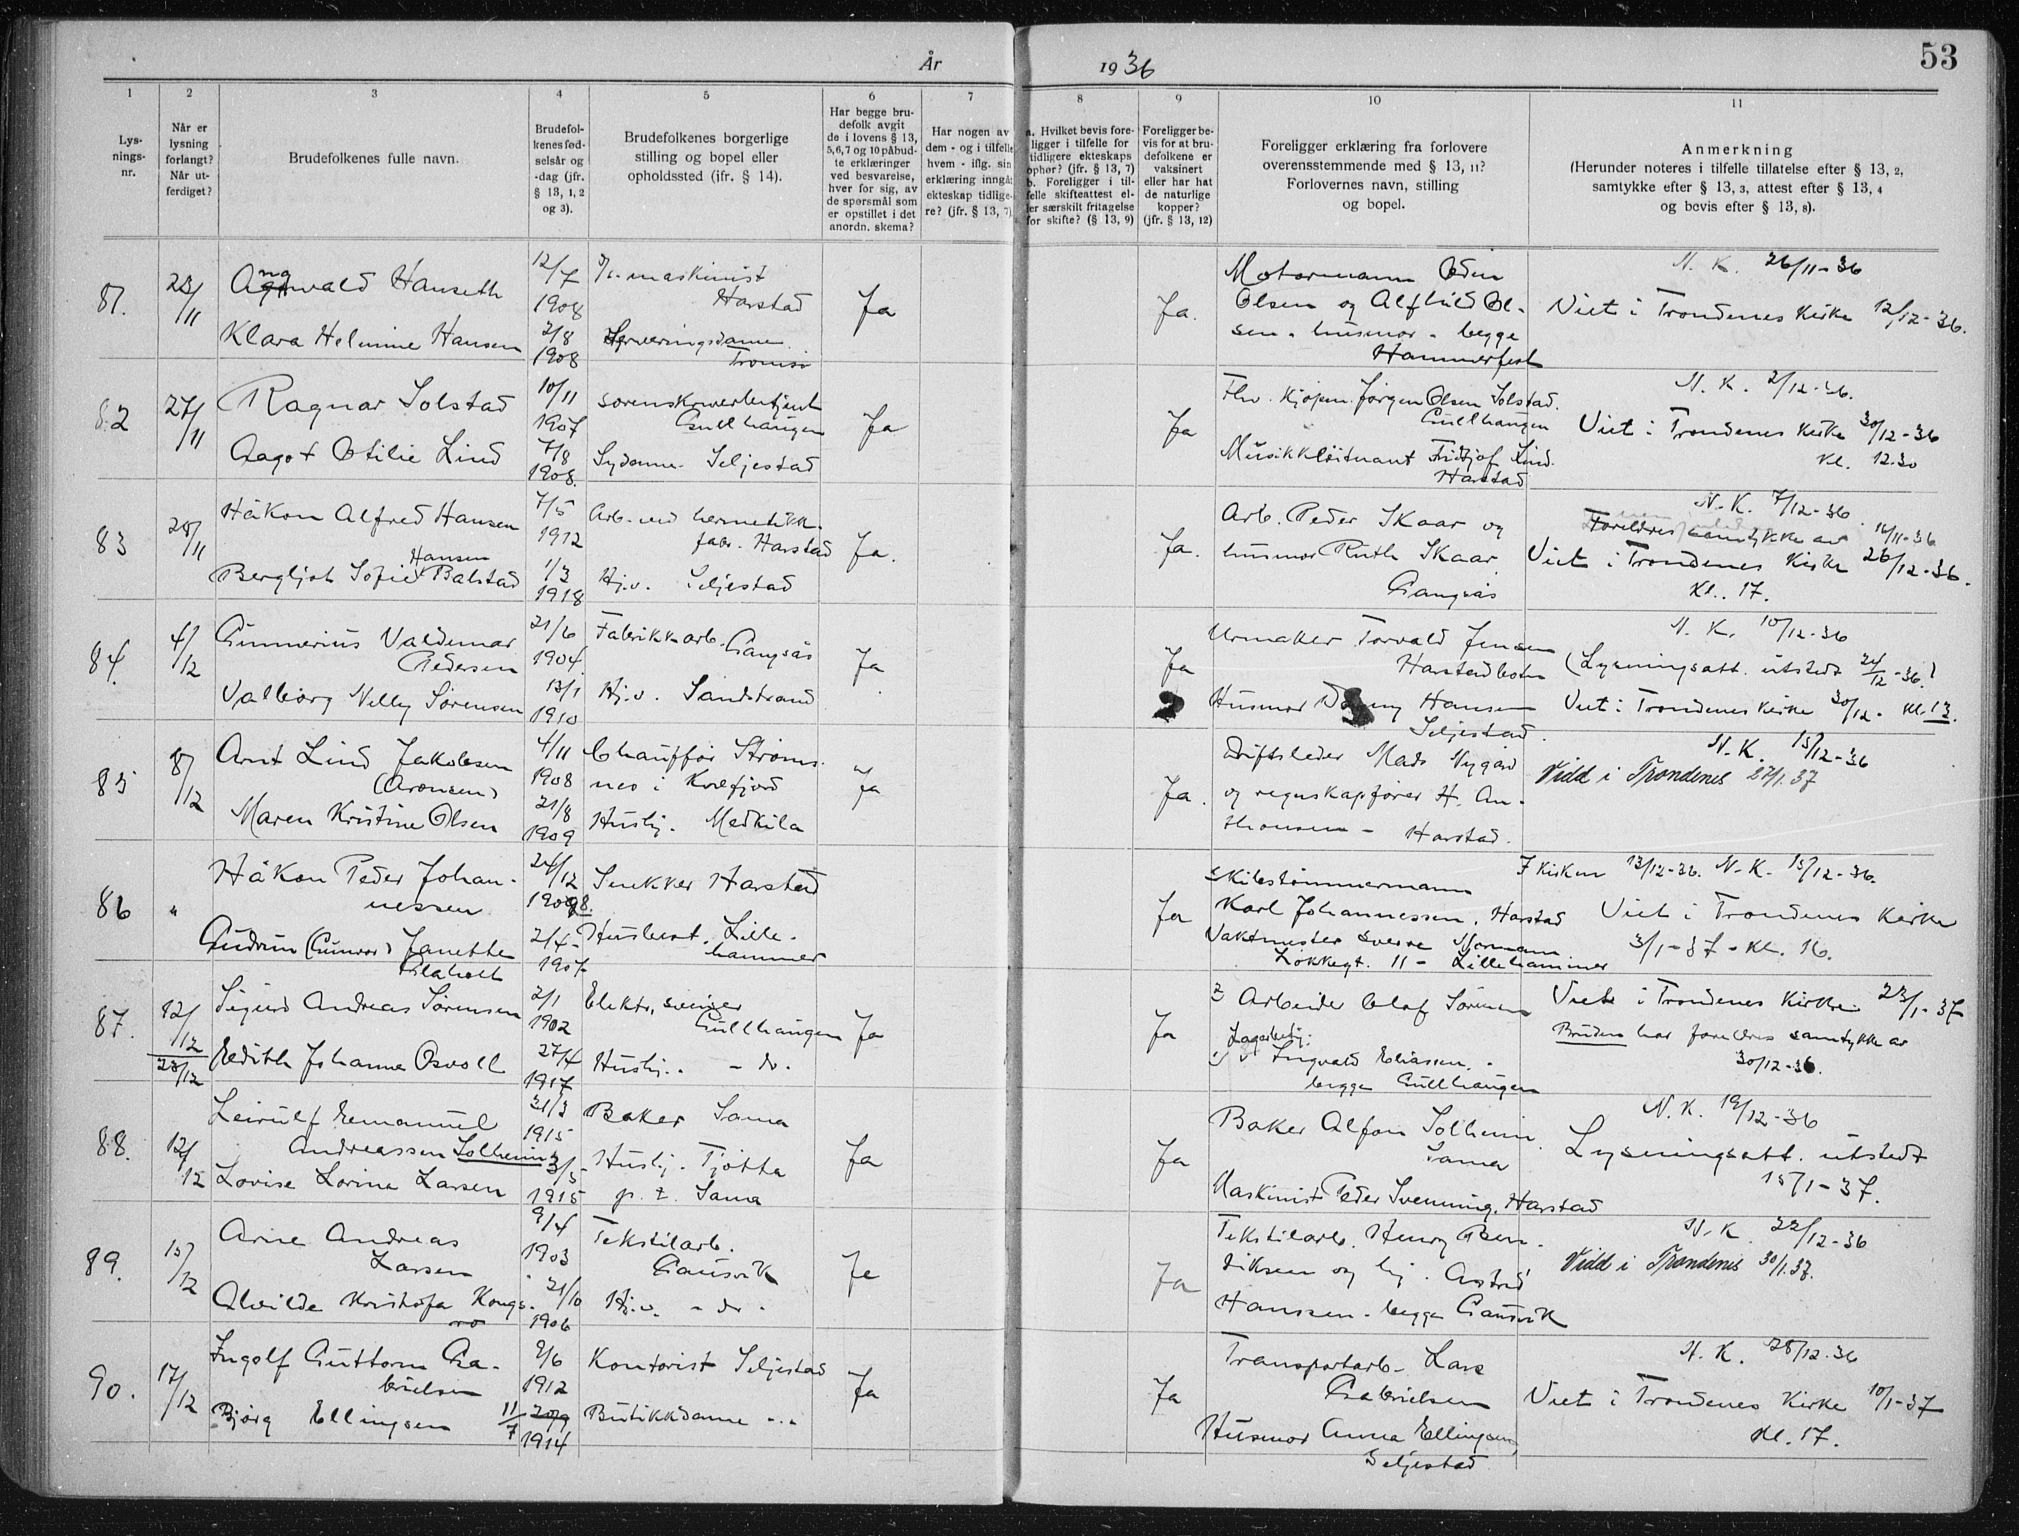 År 1936
53
1
2
3
4
5
6
7
8
9
10
11
Lys-
nings-
nr.
Når er
lysning
forlangt?
Når ut-
ferdiget?
Brudefolkenes fulle navn.
Brudefol-
kenes fød-
selsår og
-dag (jfr.
§ 13, 1, 2
og 3).
Brudefolkenes borgerlige
stilling og bopel eller
opholdssted (ifr. § 14).
Har begge bru-
defolk avgit
de i lovens § 13,
5,6,7 og 10 påbud-
te erklæringer
ved besvarelse,
hver for sig, av
de spørsmål som
er opstillet i det
anordn. skema?
Har nogen av
dem - og i tilfelle
hvem - iflg. sin
erklæring inngåt
ekteskap tidlige-
re? (jfr. § 13, 7)
a. Hvilket bevis fore-
ligger i tilfelle for
tidligere ekteskaps
ophør? (jfr. § 13, 7)
b. Foreligger i til-
felle skifteattest el-
ler særskilt fritagelse
for skifte? (§ 13, 9)
Foreligger be-
vis for at bru-
defolkene er
vaksinert
eller har hat
de naturlige
kopper?
(jfr. § 13, 12)
Foreligger erklæring fra forlovere
overensstemmende med § 13, 11?
Forlovernes navn, stilling
og bopel.
Anmerkning
(Herunder noteres i tilfelle tillatelse efter § 13, 2,
samtykke efter § 13, 3, attest efter § 13, 4
og bevis efter § 13, 8).
81.
23/11
Hanseth
Klara Helmine Hansen
12/7
1908
2/8
1908
maskinist
Harstad
Serveringsdame
Tromsø
Ja
Ja.
Motormann Odin
Olsen og Alfhild Ol-
sen - husmor - begge
Hammerfest
N. K. 26/11-36
Viet i Trondenes Kirke 12/12-36.
82
27/11
Ragnar Solstad
Aagot Otilie Lind
10/11
1907
7/8
1908.
Sorenskriverbetjent
Gullhaugen
Sydame. Seljestad
Ja
Ja
Fhv. Kjøpm. Jørgen Olsen Solstad.
Gullhaugen
Musikkløitnant Fridtjof Lind.
Harstad
N. K. 2/12-36.
Viet i Trondenes Kirke 30/12-36
Kl. 12.30
83
28/11
Håkon Alfred Hansen
Hansen
Bergljot Sofie Balstad
7/5
1912
1/3
1918
Arb. ved hermetikk-
fabr. Harstad
Hj.v. Seljestad
Ja.
Ja.
Arb. Peder Skaar og
husmor Ruth Skaar
Gangsås
N. K. 7/12-36
Foreldres samtykke av 16/11-36
Viet i Trondenes Kirke 26/12-36.
Kl. 17.
84.
4/12
Gunnerius Valdemar
Pedersen
Valborg Nelly Sørensen
21/6
1904
13/1
1910
Fabrikkarb. Gangsås
Hj.v. Sandstrand
Ja
Ja
Urmaker Torvald Jensen
Harstadbotn
Husmor Dagny Hansen
Seljestad.
N. K. 10/12-36
(Lysningsatt. utstedt 24/12-36.)
Viet i Trondenes Kirke 30/12- Kl. 13.
85
8/12
Arnt Lind Jakobsen
(Aronsen)
Maren Kristine Olsen
4/11
1908
21/8
1909
Chauffør Strøms-
nes i Kvæfjord
Huslj. Medkila
Ja
Ja.
Driftsleder Mads Nygård
og regnskapfører H. An-
thonsen - Harstad.
N. K. 15/12-36
Vidd i Trondenes 27/1.37
86
"
Håkon Peder Johan-
nessen
Gudrun (Gunvor) Janette
24/12
2/4-
1907
Snekker Harstad
Lille-
hammer
Ja
Skibstømmermann
Karl Johannessen, Harstad
Vaktmester Sverre Normann
Løkkegt. 11 - Lillehammer
I Kirken 13/12-36. N. K. 15/12-36.
Viet i Trondenes Kirke
3/1-37 - Kl. 16.
87.
12/12
23/12
Sigurd Andreas Sørensen
Edith Johanne Osvoll
2/1
1902
27/4
1917
Elektr. sveiser
Gullhaugen
Huslj. - do.
Ja
Ja
Arbeider Olaf Sørensen
Lagerbetj.
Ingvald Eliassen -
begge Gullhaugen
Viet i Trondenes Kirke 23/1-37
Bruden har foreldres samtykke av
30/12-36.
88.
12/12
Leirulf Emanuel
Andreassen Solheim
Lovise Lorina Larsen
31/3
1915
3/5-
1915
Baker Sama
Huslj. Tjøtta
p. t. Sama
Ja
Ja
Baker Alfon Solheim
Sama
Maskinist Peder Svenning, Harstad
N. K. 19/12-36
Lysningsatt. utstedt
15/1-37.
89.
15/12
Arne Andreas
Larsen
Alvilde Kristofa Kongs-
ro
9/4
1903
21/10
1906
Tekstilarb.
Gausvik
Hj.v. - do -
Ja
Ja
Tekstilarb. Henry Ben-
diksen og hj. Astrid
Hanssen - begge Gausvik
N. K. 22/12-36
Vidd i Trondenes 30/1.37.
90.
17/12
Ingolf Guttorm Ga-
brielsen
Bjørg Ellingsen
9/6
1912
11/7 20/9
1914
Kontorist Seljestad
Butikkdame - " -
Ja
Ja
Transportarb. Lars
Gabrielsen
Husmor Anna Ellingsen,
Seljestad
N. K. 28/12.36
Viet i Trondenes Kirke 10/1-37
Kl. 17.